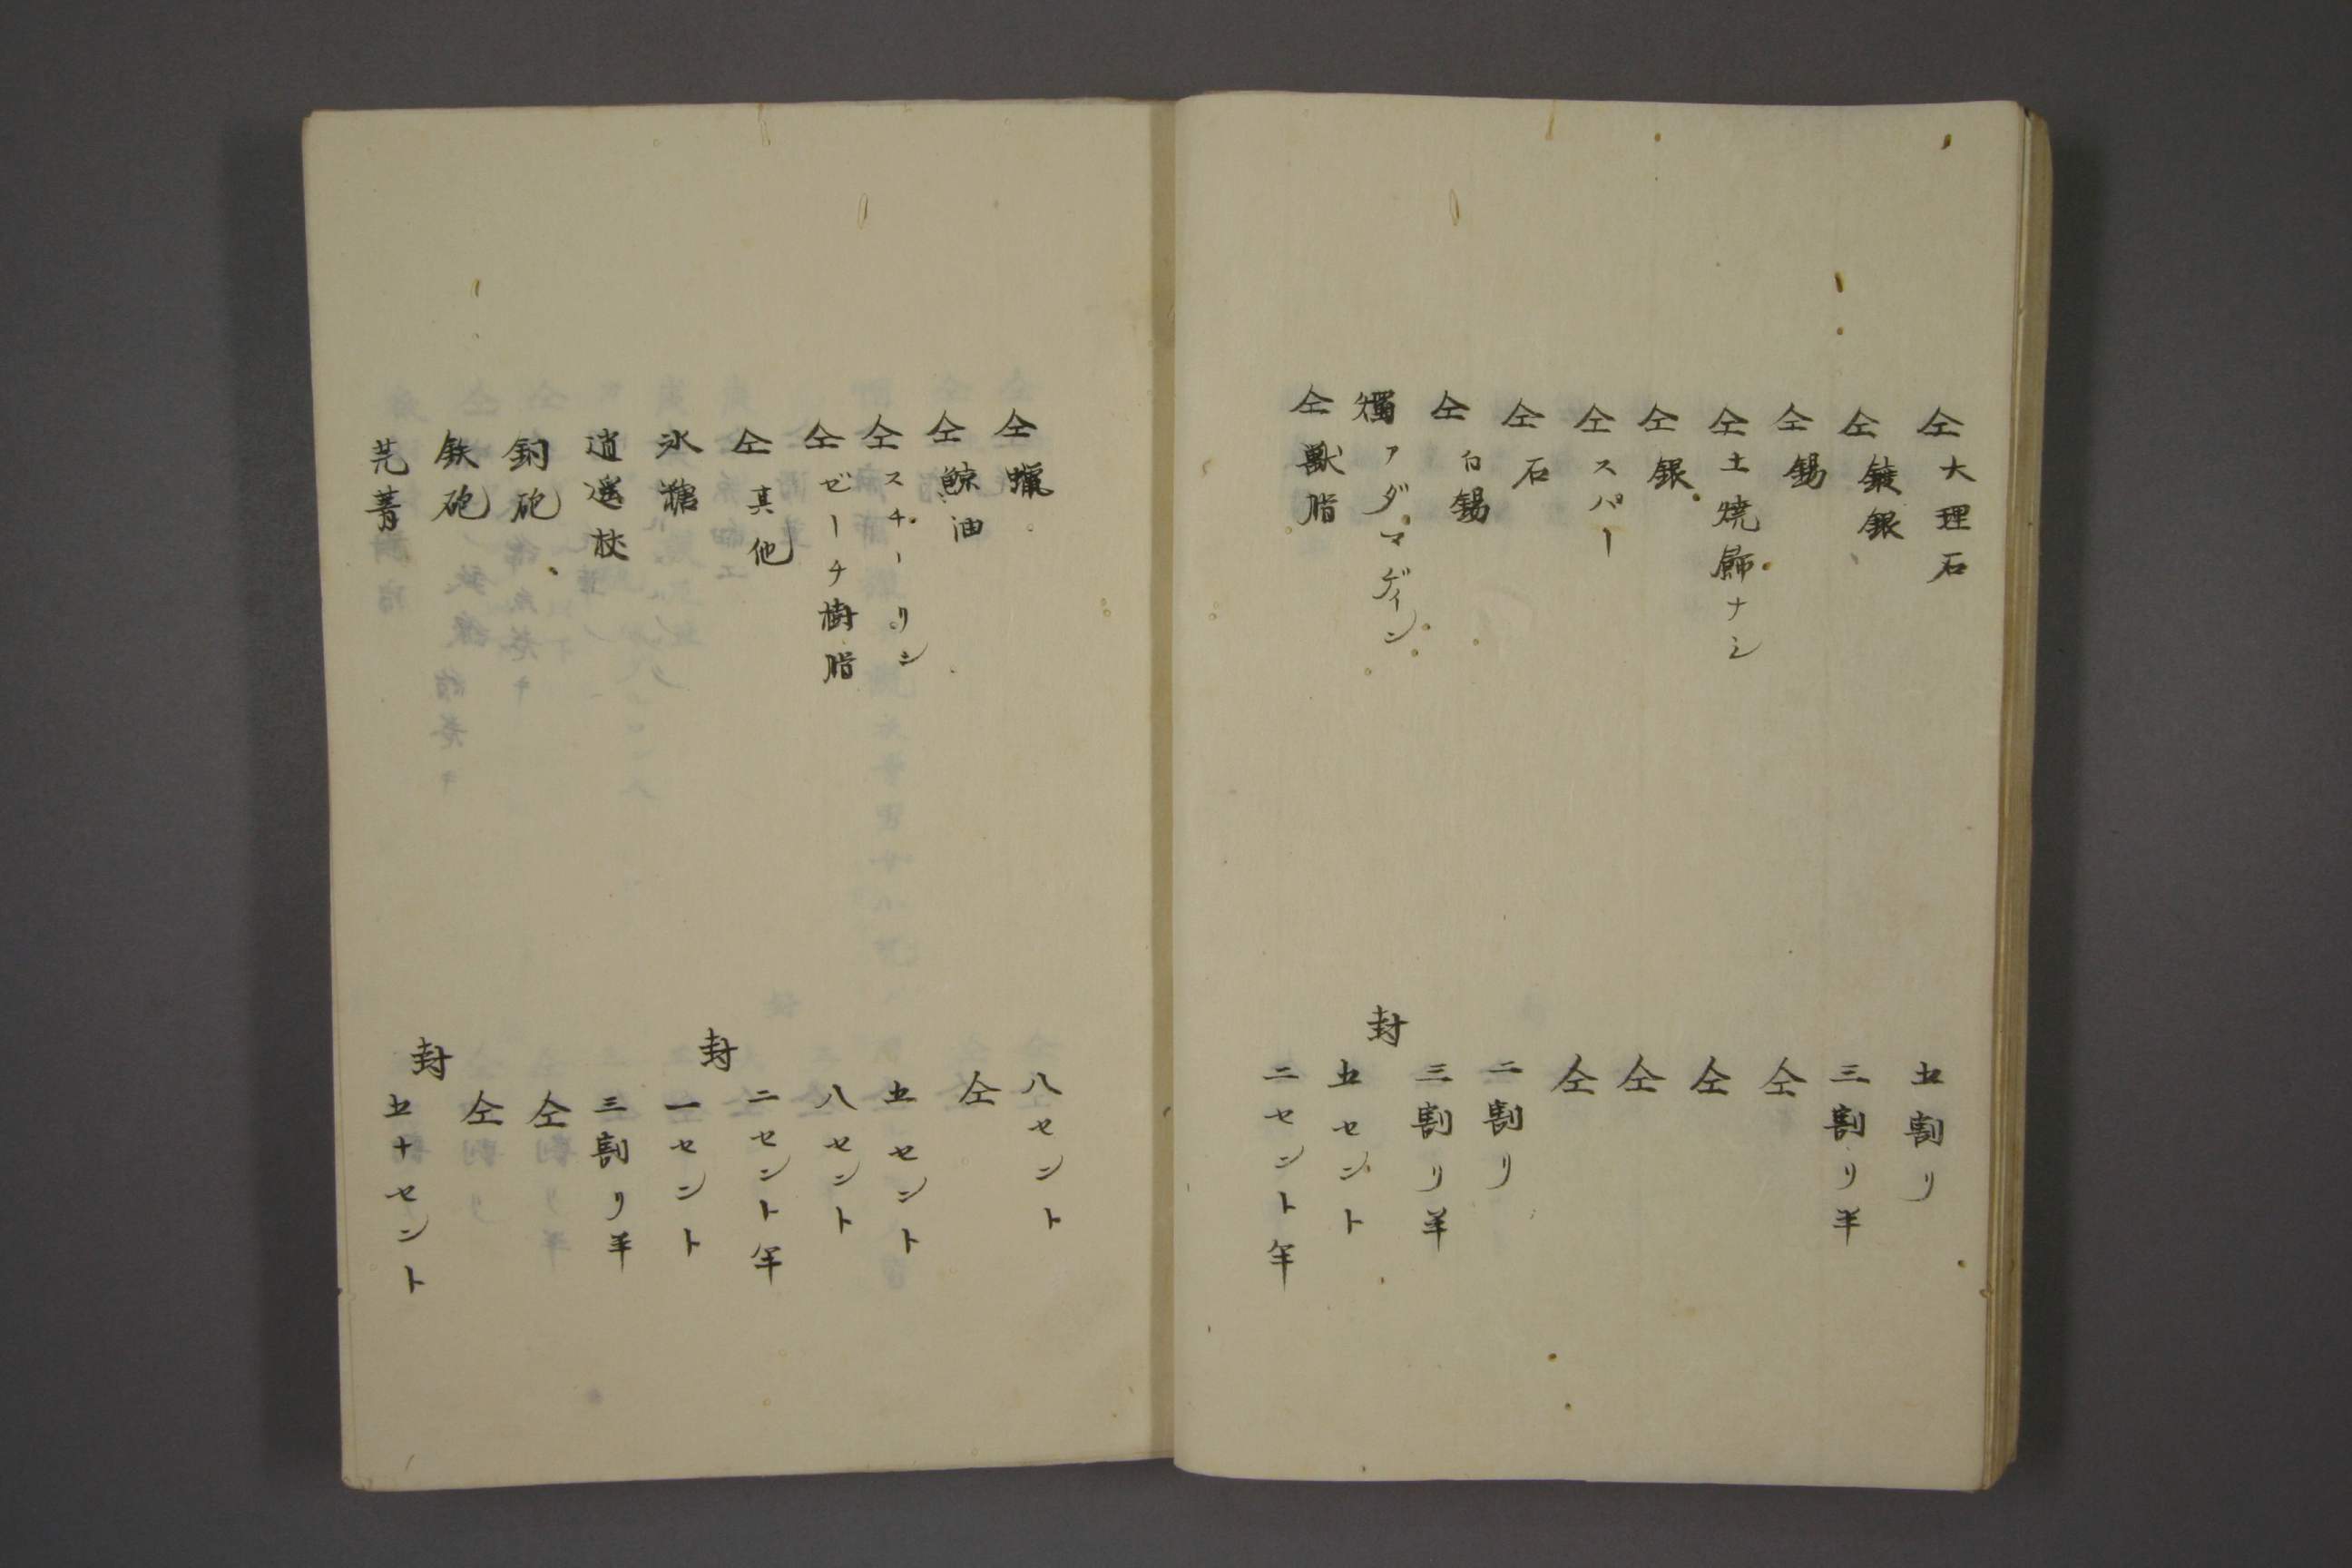 仝大理石 五割リ
仝鍍銀 三割リ半
仝錫 仝
仝土焼歸ナシ 仝
仝銀 仝
仝スパー 仝
仝石 二割リ
仝白錫 三割リ半
燭アダマゲイン 封五セント
仝獸脂 二セント半
仝蠟 八セント
仝鯨油 仝
仝スチーリン 五セント
仝ゼーチ樹脂 八セント
仝其他 二セント半
氷糖 封一セント
逍遥杖 三割リ半
銅砲 仝
鉄砲 仝
芫菁 封五十セント